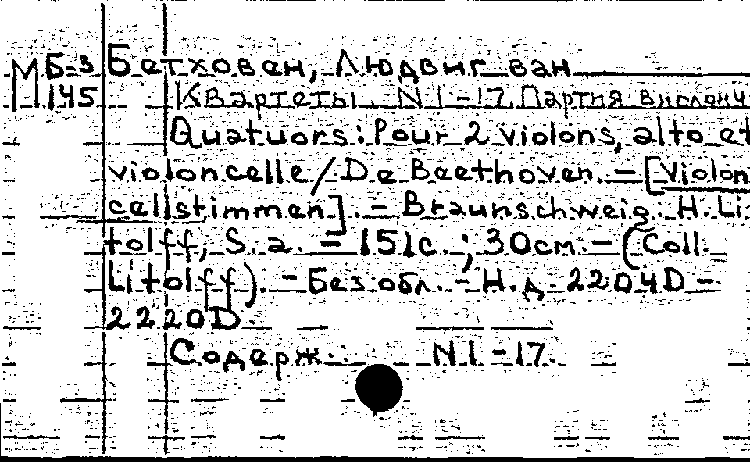 М Б-3 Бетховен, Людвиг ван
145 [Квартеты. N 1-17. Партия виолонч
Quatuors: Pour 2 violons, alto et
violoncelle / De Beethoven. – [Violon
cellstimmen]. – Braunschweig: H. Li
tolff, S. a. – 151с.; 30см. – (Coll.
Litolff). – Без обл. – Н.д. 2204D –
2220D.
Содерж.: N 1-17.